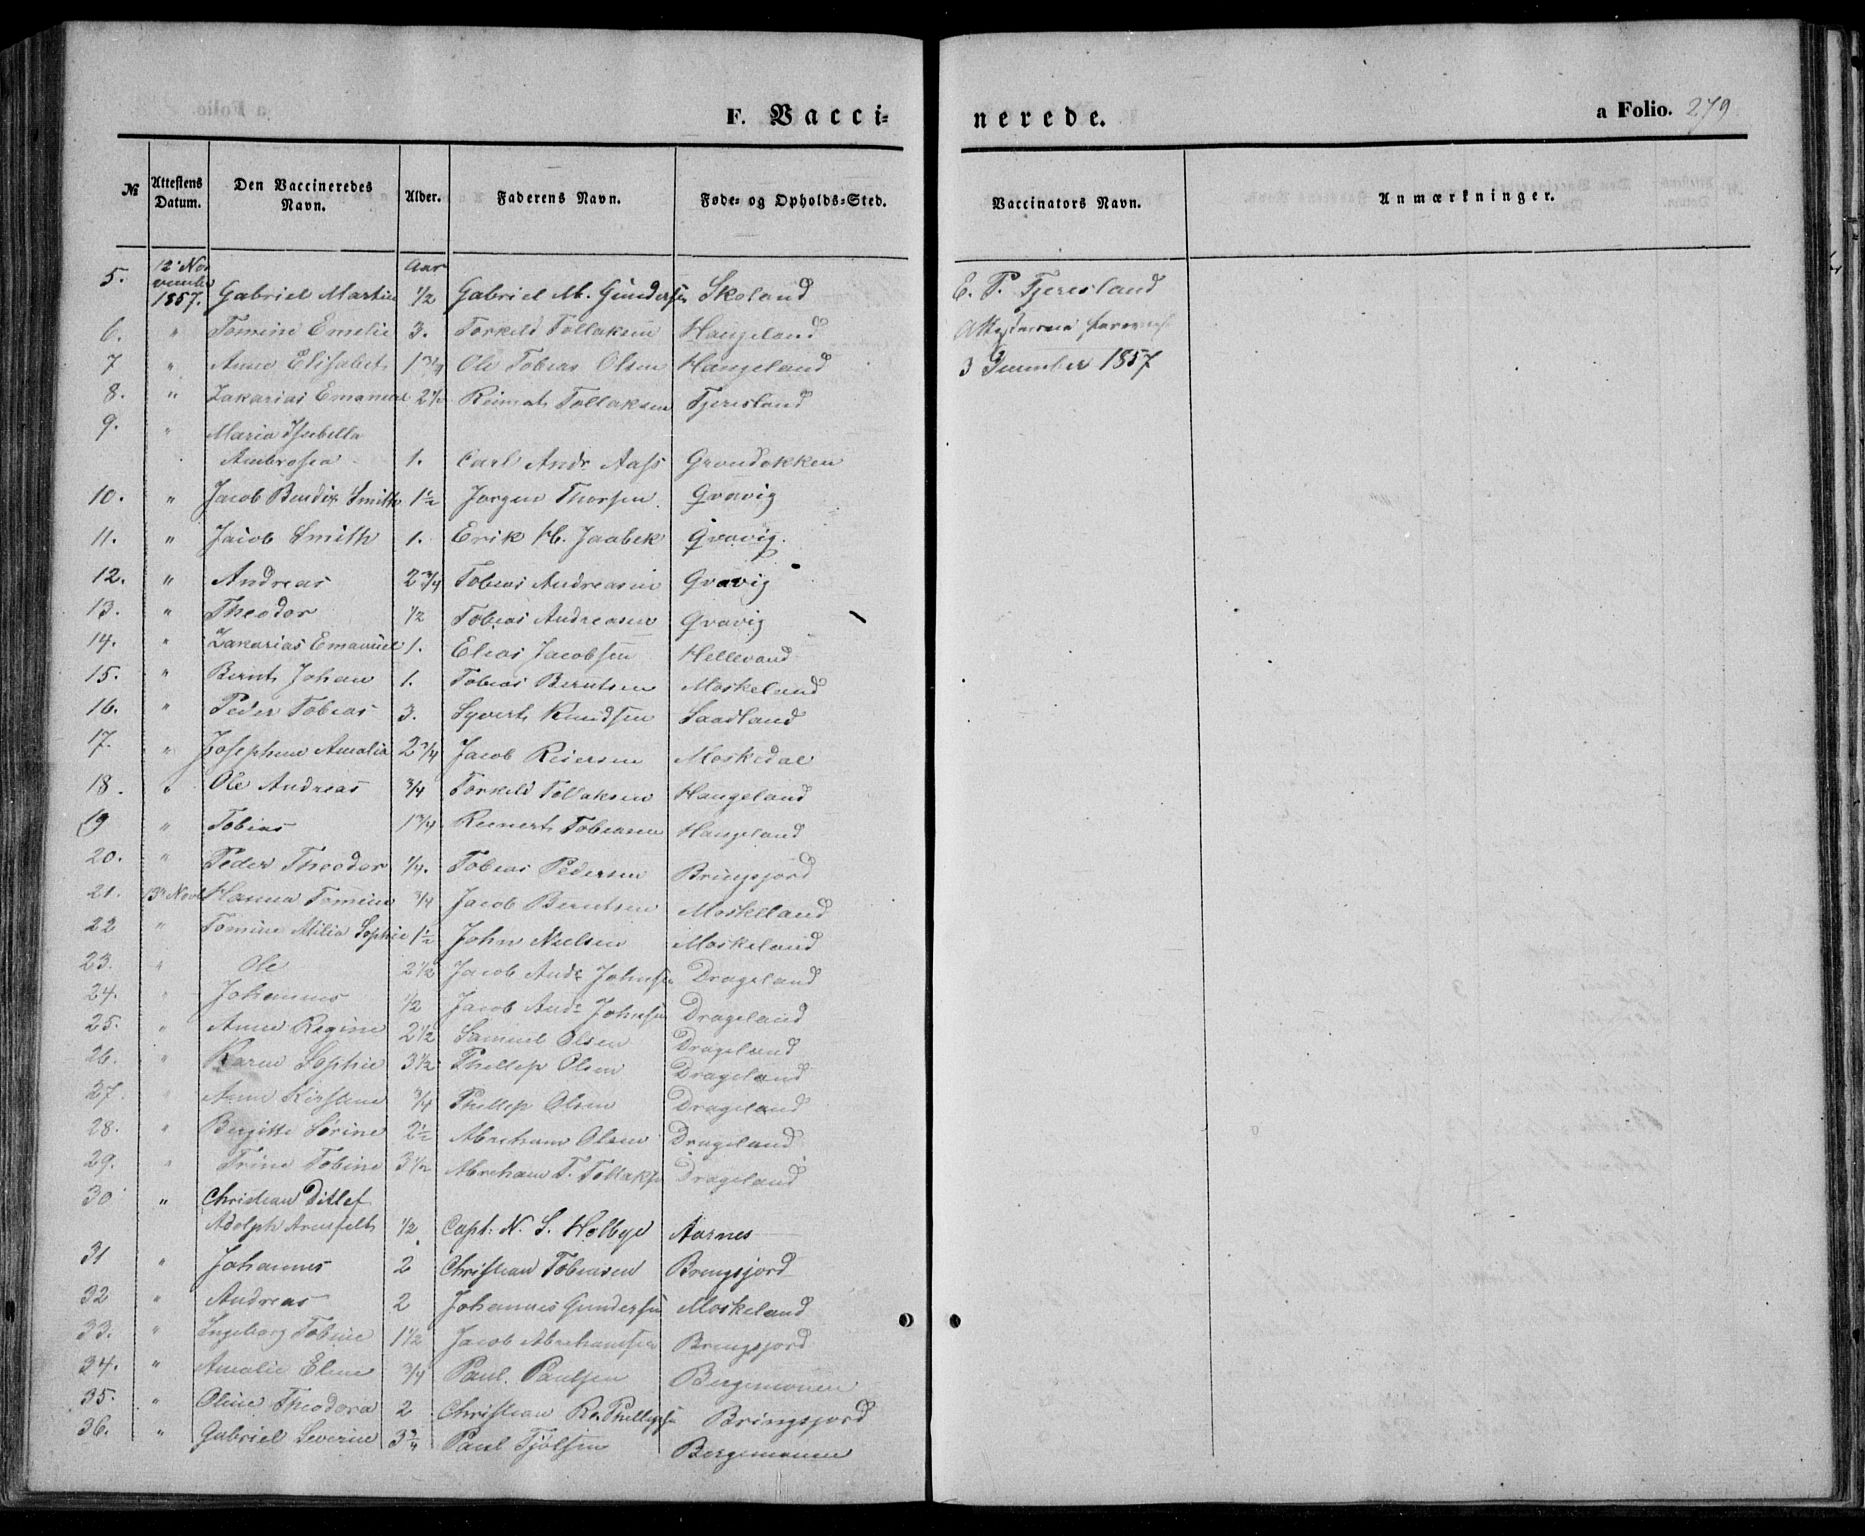 F. Vacci=
nerede.
a Folio. 279
№ Attestens Datum. Den Vaccineredes Navn. Alder. Faderens Navn. Føde- og Opholds-Sted. Vaccinators Navn. Anmærkninger.
5. 12 November 1857. Gabriel Martin Aar 1/2 Gabriel M. Gundersen Skoland E. P. Fjeresland
6. " Tomine Emelie 3. Torkild Tollaksen Haugeland Attesterne
7 " Anne Elisabeth 1 3/4 Ole Tobias Olsen Haugeland 3 December 1857
8. " Zakarias Emanuel 2 1/2 Reinert Tollaksen Fjeresland
9. " Maria Isabella
Ambrosia 1. Carl Andr Aass Grondokken
10. " Jacob Bendix Smith 1 1/2 Jorgen Thorsen. Qvavig
11. " Jacob Smith 1. Erik H. Jaabek Qvavig.
12. " Andreas 2 3/4 Tobias Andreasen Qvavig
13. " Theodor 1/2 Tobias Andreasen Qvavig
14. " Zakarias Emanuel 1. Elias Jacobsen Hellevand
15. " Bernt Johan 1. Tobias Berntsen Moskeland
16. " Peder Tobias 3. Syvert Knudsen Saadland
17. " Josephine Amalia 2 3/4 Jacob Reiersen Moskedal
18. " Ole Andreas 3/4 Torkild Tollaksen Haugeland
19 " Tobias 1 3/4 Reinert Tobiasen Haugeland
20. " Peder Theodor 1/4. Tobias Pedersen Bringsjord
21. 13 Novb Hanna Tomine 3/4 Jacob Berntsen Moskeland
22 " Tomine Milia Sophie 1 1/2 John Nielsen Moskeland
23. " Ole 2 1/2 Jacob Andr Johnsen Drageland
24. " Johannes 1/2 Jacob Andr Johnsen Drageland
25. " Anne Regine 2 1/2 Samuel Olsen Drageland
26. " Karen Sophie 3 1/2 Phillip Olsen Drageland
27. " Anne Kirstine 3/4 Phillip Olsen Drageland
28. " Birgitte Sørine 2 1/2 Abraham Olsen Drageland
29. " Trine Tobine 3 1/2 Abraham T. Tollaksen Drageland
30 " Christian Ditlef
Adolph Arnsfelt 1/2. Capt. N. S. Holbye Aarnes
31 " Johannes 2 Christian Tobiasen Bringsjord
32 " Andreas 2 Johannes Gundersen Moskeland
33. " Ingeborg Tobine 1 1/2 Jacob Abrahamsen Bringsjord
34. " Amalie Eline 3/4 Paul Paulsen Bergemonen
35. " Oline Theodora 2 Christian R. Phillipsen Bringsjord
36. " Gabriel Severine 3 3/4 Paul Tjølsen Bergemonen